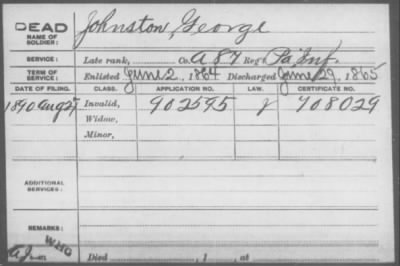 DEAD Johnston, George
NAME OF SOLDIER:
SERVICE: Late rank, Co. A 87 Reg't Pa Inf.
TERM OF SERVICE: Enlisted June 2, 1864 Discharged June 29, 1865
DATE OF FILING. CLASS. APPLICATION NO. LAW. CERTIFICATE NO.
1890 Aug 27 Invalid, 902595 708029
Widow,
Minor,
ADDITIONAL SERVICES:
REMARKS:
WHG
Died , 1 , at